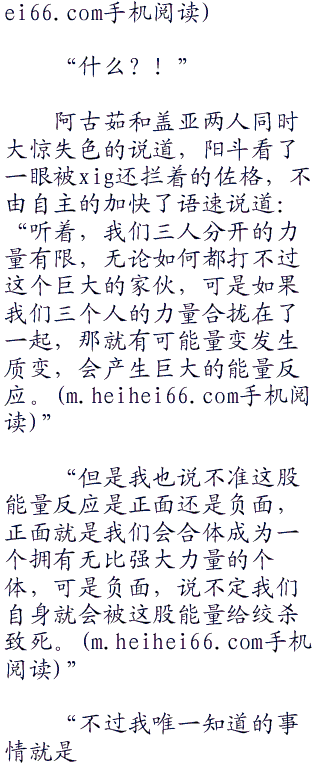 ei66.com手机阅读)
“什么?!”
阿古茹和盖亚两人同时
大惊失色的说道,阳斗看了
一眼被xig还拦着的佐格,不
由自主的加快了语速说道:
“听着,我们三人分开的力
量有限,无论如何都打不过
这个巨大的家伙,可是如果
我们三个人的力量合拢在了
一起,那就有可能量变发生
质变,会产生巨大的能量反
应。(m.heihei66.com手机阅
读)”
“但是我也说不准这股
能量反应是正面还是负面,
正面就是我们会合体成为一
个拥有无比强大力量的个
体,可是负面,说不定我们
自身就会被这股能量给绞杀
致死。(m.heihei66.com手机
阅读)”
“不过我唯一知道的事
情就是